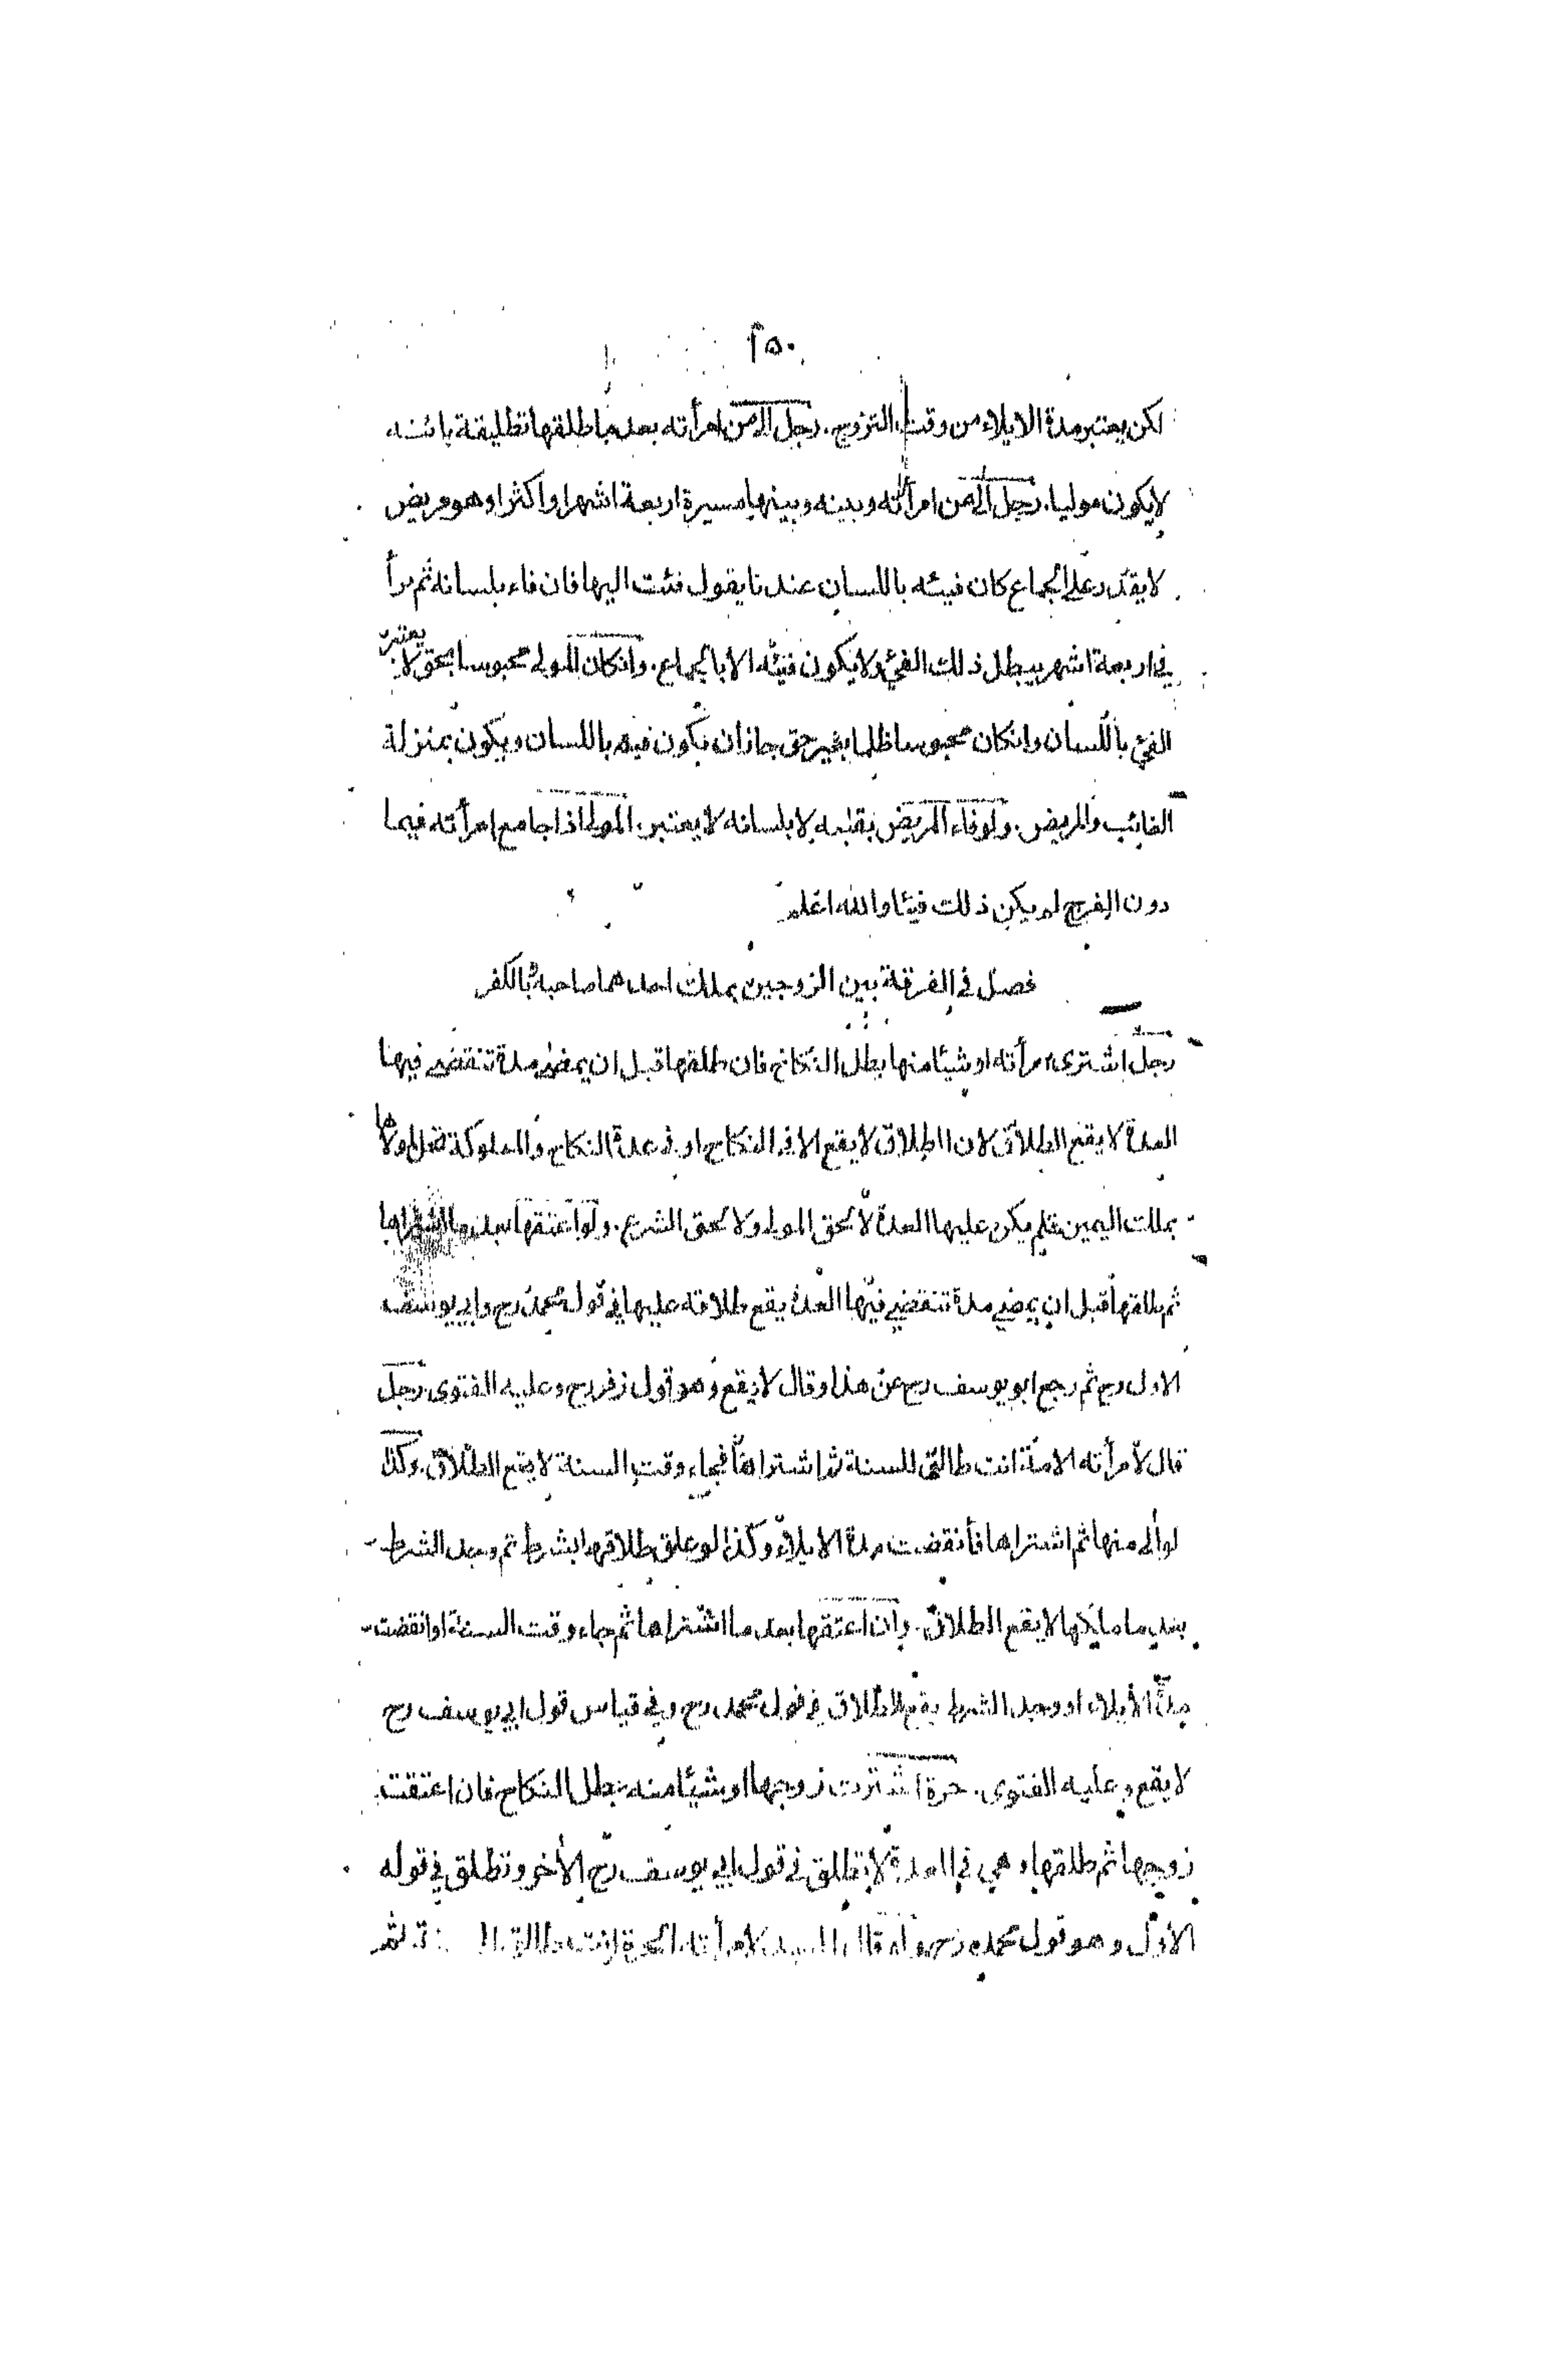 ٢٥٠
لكن يعتبر مدة الايلاء من وقت التزوج. رجل الى من امرأته بعد ما طلقها تطليقة بائنه
لايكون موليا. رجل الى من امرأته وبينه وبينها مسيرة اربعة اشهر او اكثر او هو مريض
لا يقدر على الجماع كان فيئه باللسان عندنا يقول فئت اليها فان فاء بلسانه ثم برأ
في اربعة اشهر يبطل ذلك الفئ ولا يكون فيئه الا بالجماع. وانكان المولى محبوسا بحق لا يعتبر
الفئ باللسان وانكان محبوسا ظلما بغير حق جاز ان يكون فيئه باللسان ويكون بمنزلة
الغائب والمريض. ولو فاء المريض بقلبه لا بلسانه لا يعتبر. المولى اذا جامع امرأته فيما
دون الفرج لم يكن ذلك فيئا والله اعلم
فصل في الفرقة بين الزوجين بملك احدهما صاحبه وبالكفر
رجل اشترى امرأته او شيئا منها بطل النكاح فان طلقها قبل ان يمضي مدة تنقضي فيها
العدة لا يقع الطلاق لان الطلاق لا يقع الا في النكاح او في عدة النكاح والمملوكة تحل لمولاها
بملك اليمين فلم يكن عليها العدة لا بحق المولى ولا بحق الشرع. ولو اعتقها بعد ما اشتراها
ثم طلقها قبل ان يمضي مدة تنقضي فيها العدة يقع طلاقه عليها في قول محمد رح وابي يوسف
الاول رح ثم رجع ابو يوسف رح عن هذا وقال لا يقع وهو قول زفر رح وعليه الفتوى. رجل
قال لامرأته الامة انت طالق للسنة ثم اشتراها فجاء وقت السنة لا يقع الطلاق. وكذا
لو الى منها ثم اشتراها فانقضت مدة الايلاء وكذا لو علق طلاقها بشرط ثم وجد الشرط
بعد ما ملكها لا يقع الطلاق. وان اعتقها بعد ما اشتراها ثم جاء وقت السنة او انقضت
مدة الايلاء او وجد الشرط يقع الطلاق في قول محمد رح وفي قياس قول ابي يوسف رح
لا يقع وعليه الفتوى. حرة اشترت زوجها او شيئا منه بطل النكاح فان اعتقت
زوجها ثم طلقها وهي في العدة لا تطلق في قول ابي يوسف رح الأخر وتطلق في قوله
الاول وهو قول محمد رح ولو قال العبد لامرأته الحرة انت طالق ثم